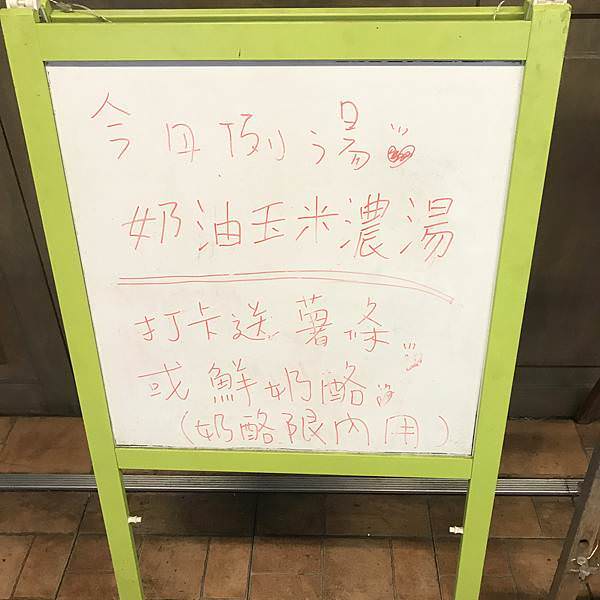 今日例湯
奶油玉米濃湯
打卡送薯條
或鮮奶酪
(奶酪限內用)